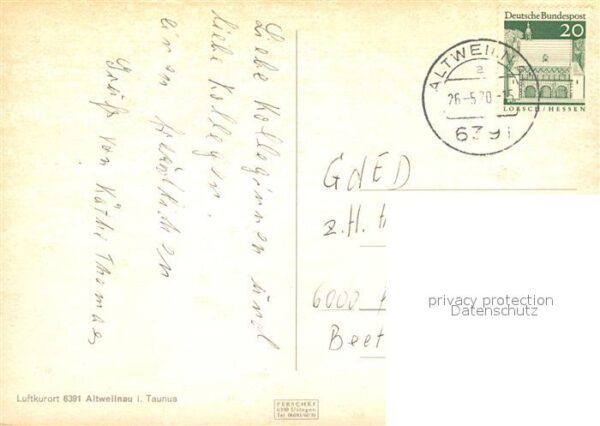 Liebe Kolleginnen und
liebe Kollegen.
einen herzlichen
Gruß von Käthe Thomas
Deutsche Bundespost
20
LORSCH/HESSEN
ALTWEILNAU
a
26-5.70-15
6391
GdED
z.H.
6000
privacy protection
Datenschutz
Luftkurort 6391 Altweilnau i. Taunus